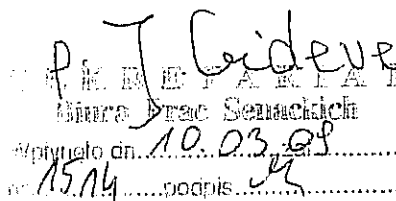 P. J
SEKRETARIAT
Biura Prac Senackich
wpłynęło dn. 10.03.09
nr 1514 podpis